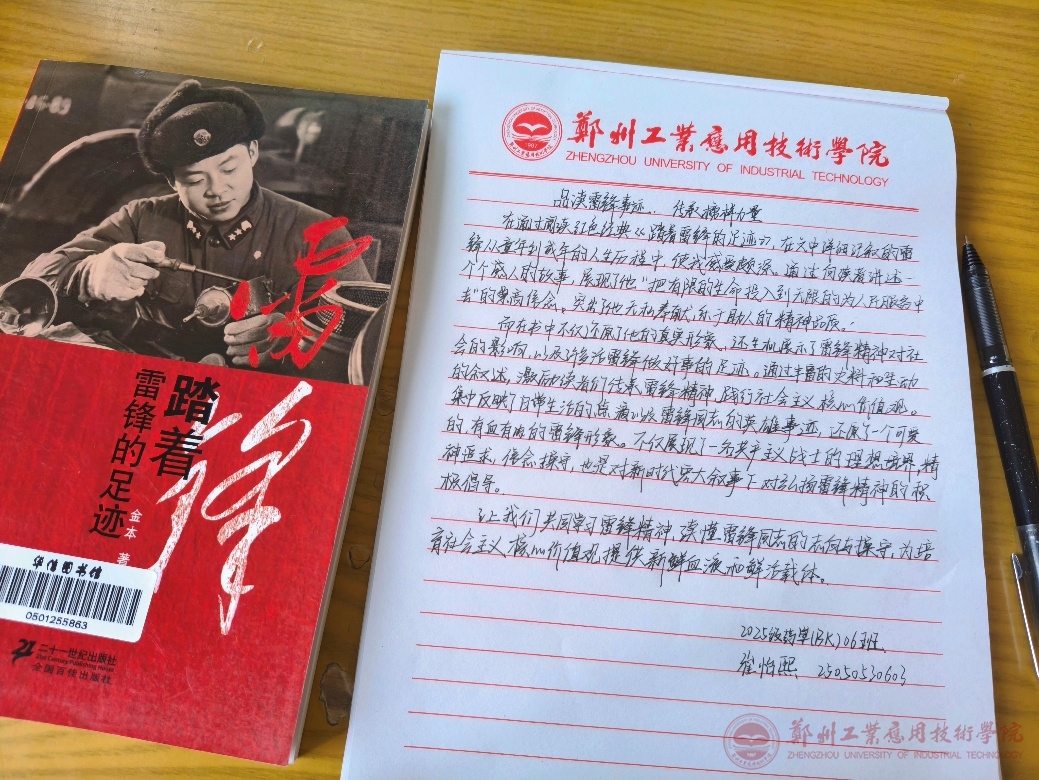 06-09
雷锋
踏着
雷锋的足迹
金本 著
华信图书馆
0501255863
二十一世纪出版社
21st Century Publishing House
全国百佳出版社
1907
鄭州工業應用技術學院
ZHENGZHOU UNIVERSITY OF INDUSTRIAL TECHNOLOGY
品读雷锋事迹、传承榜样力量
在通过阅读红色经典《踏着雷锋的足迹》,在文中详细记叙的雷
锋从童年到成年的人生历程中,使我感受颇深。通过向读者讲述一
个个感人的故事,展现了他“把有限的生命投入到无限的为人民服务中
去”的崇高信念。突出了他无私奉献,乐于助人的精神品质。
而在书中不仅还原了他的真实形象,还生机展示了雷锋精神对社
会的影响,以及许多活雷锋做好事的足迹。通过丰富的史料和生动
的叙述,激励读者们传承雷锋精神,践行社会主义核心价值观。
集中反映了日常生活的点滴以及雷锋同志的英雄事迹,还原了一个可爱
的,有血有肉的雷锋形象。不仅展现了一名共产主义战士的理想境界,精
神追求,信念操守,也是对新时代宏大叙事下对弘扬雷锋精神的积
极倡导。
让我们共同学习雷锋精神,读懂雷锋同志的志向与操守,为培
育社会主义核心价值观提供新鲜血液和鲜活载体。
2025级药学(BK)06班
崔怡熙 25050530603
鄭州工業應用技術學院
ZHENGZHOU UNIVERSITY OF INDUSTRIAL TECHNOLOGY